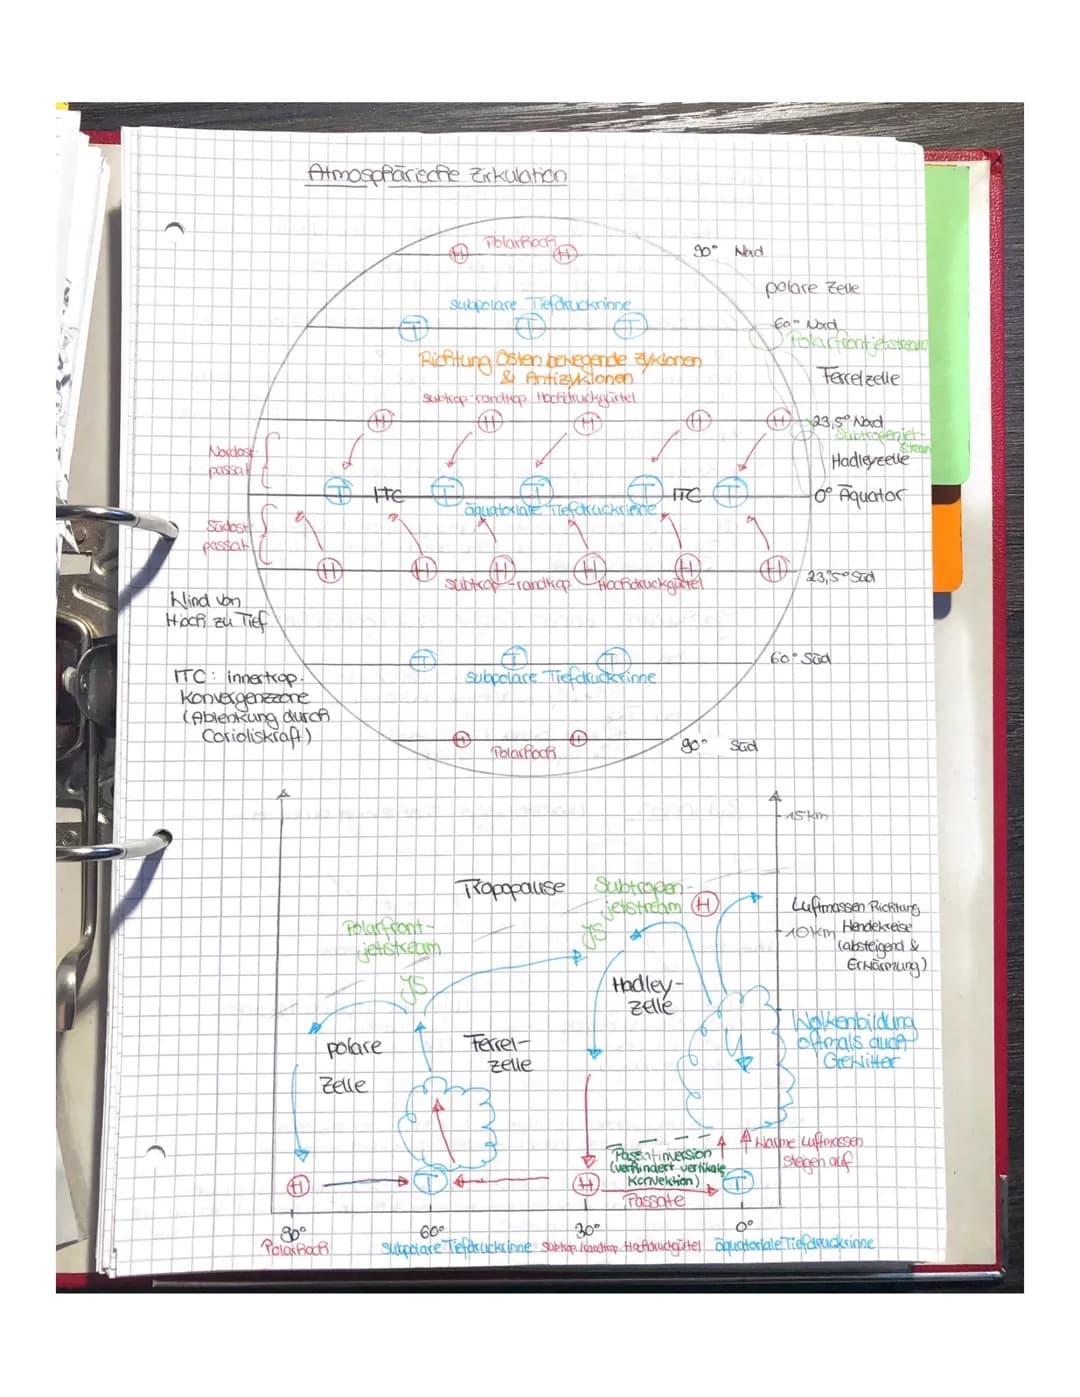 Atmosphärische Zirkulation
Polarhoch
H
H
90° Nord
polare Zelle
subpolare Tiefdruckrinne
T
T
T
60° Nord
Polarfrontjetstream
Richtung Osten bewegende Zyklonen
& Antizyklonen
Ferrelzelle
subtrop-randtrop. Hochdruckgürtel
H
H
H
H
H
23,5° Nord
Subtropenjet-
stream
Nordost-
passat
Hadleyzelle
T
ITC
T
T
T
ITC
T
0° Äquator
äquatoriale Tiefdruckrinne
Südost-
passat
H
H
H
H
H
H
23,5° Süd
subtrop-randtrop. Hochdruckgürtel
Wind von
Hoch zu Tief
T
T
T
60° Süd
subpolare Tiefdruckrinne
ITC: innertrop.
Konvergenzzone
(Ablenkung durch
Corioliskraft)
H
H
Polarhoch
90° Süd
15km
Tropopause
Subtropen-
jetstream
H
JS
Luftmassen Richtung
10km Wendekreise
(absteigend &
Erwärmung)
Polarfront-
jetstream
JS
Hadley-
zelle
polare
Zelle
Ferrel-
zelle
Wolkenbildung
oftmals auch
Gewitter
Passatinversion
(verhindert vertikale
Konvektion)
Warme Luftmassen
steigen auf
H
T
H
T
Passate
90°
60°
30°
0°
Polarhoch
subpolare Tiefdruckrinne
subtrop./randtrop. Hochdruckgürtel
äquatoriale Tiefdruckrinne